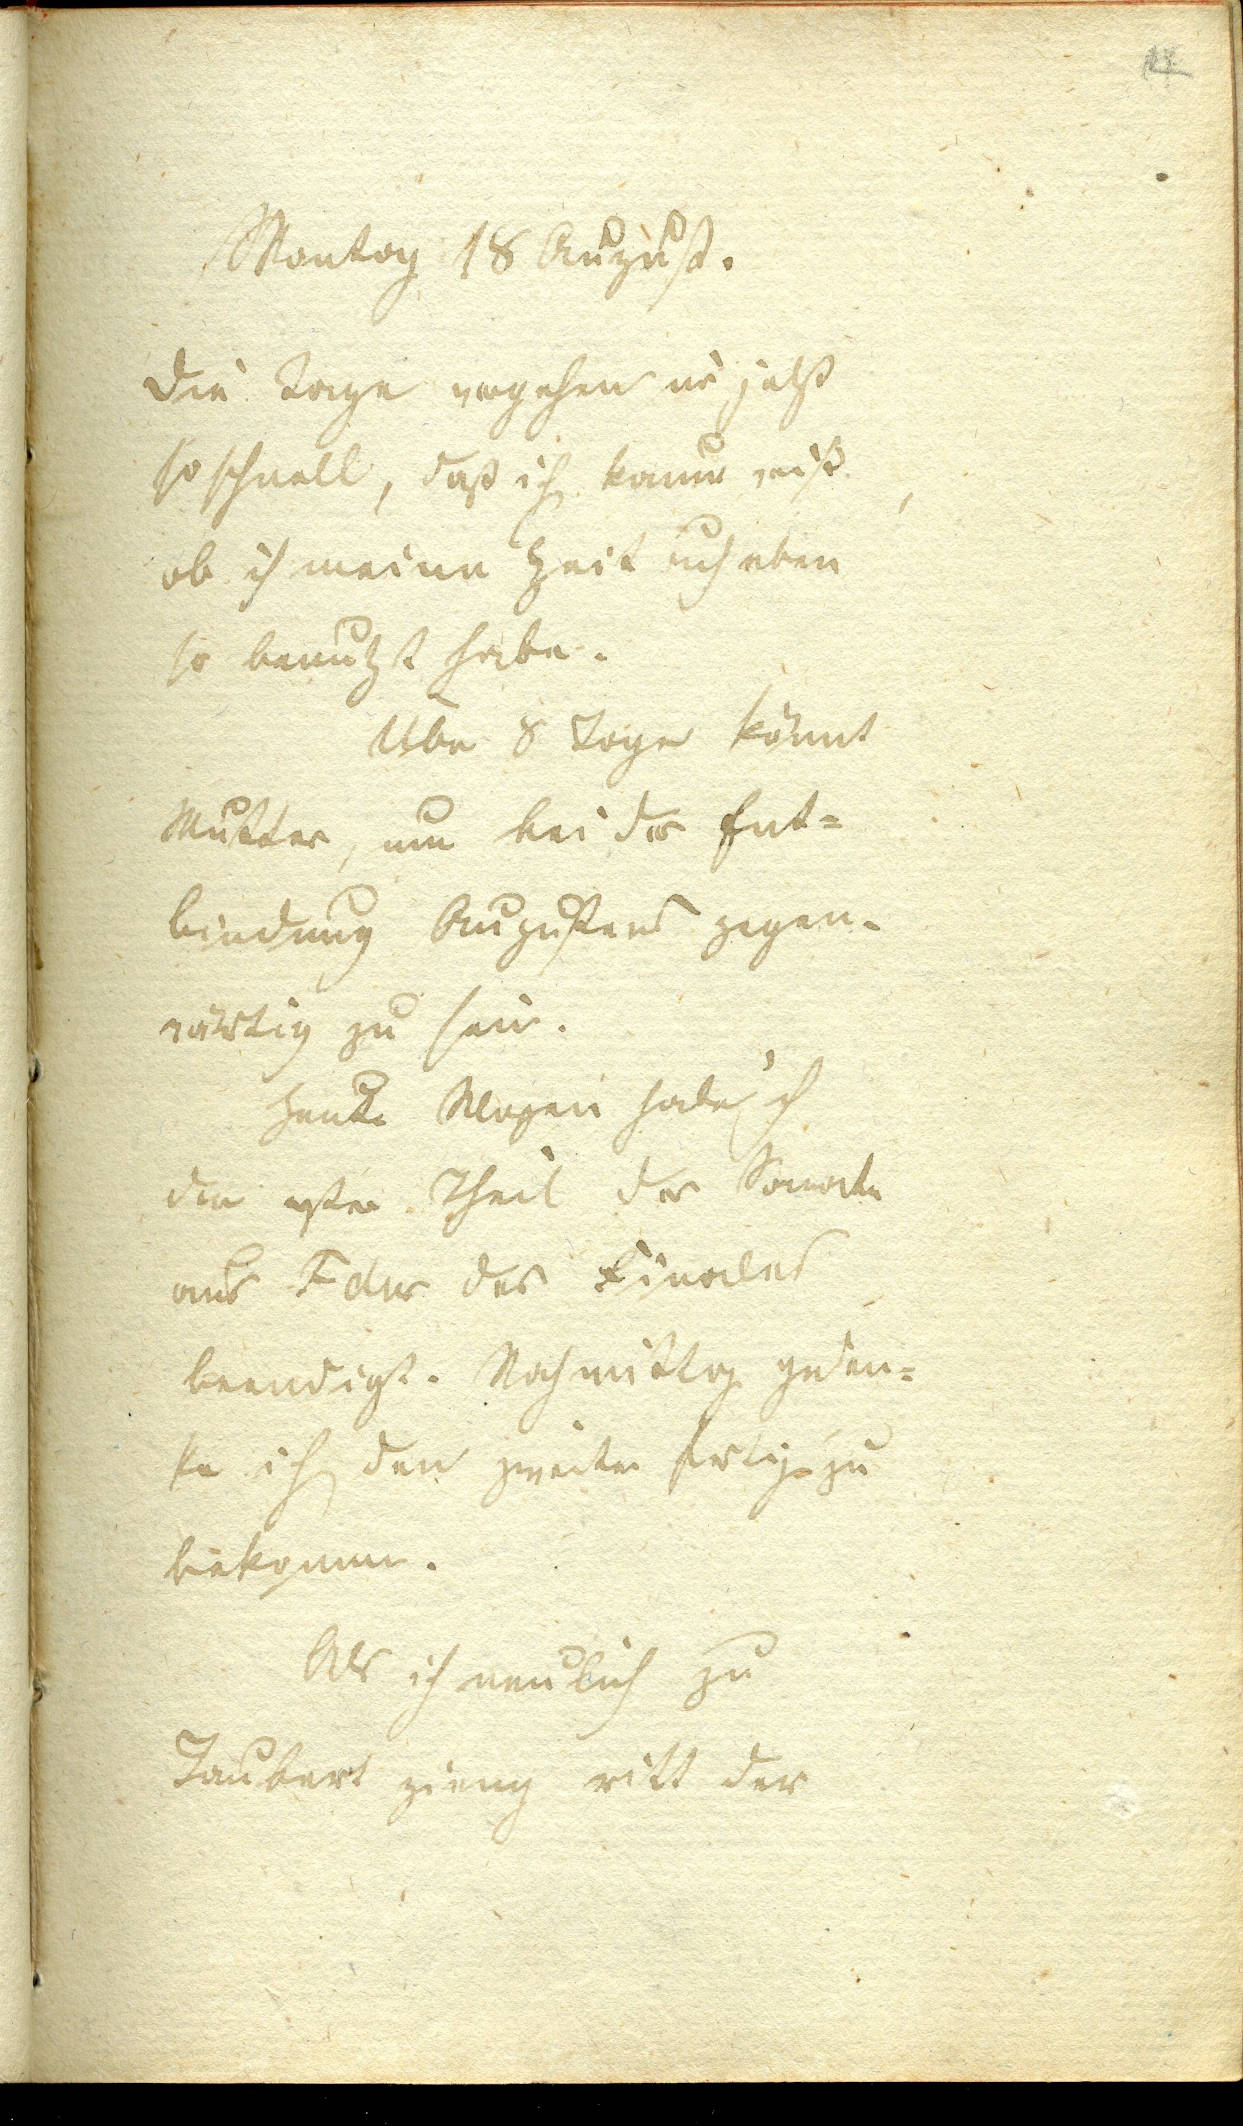 Montag 18 August.
Die Tage vergehen mir jetzt
so schnell, daß ich kaum weiß,
ob ich meine Zeit auch eben
so benutzt habe.
Über 8 Tage kömmt
Mutter, um bei der Ent=
bindung Augustens gegen-
wärtig zu sein.
Heute Morgen habe ich
den ersten Theil der Sonate
aus F dur des Finales
beendigt. Nachmittag geden=
ke ich den zweiten fertig zu
bekommen.
Als ich neulich zu
Taubert gieng ritt der